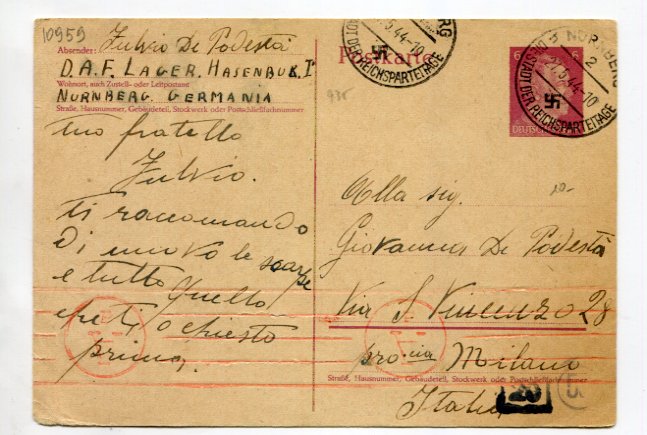 10959
Absender: Fulvio De Podestà
D.A.F. LAGER. HASENBUK. I
Wohnort, auch Zustell- oder Leitpostamt
NURNBERG. GERMANIA
Straße, Hausnummer, Gebäudeteil, Stockwerk oder Postschließfachnummer
tuo fratello
Fulvio.
ti raccomando
di nuovo le scarpe
e tutto quello
che ti o chiesto
prima.
Postkarte
5.44-10
DER REICHSPARTEITAGE
NÜRNBERG
2
27.5.44-10
STADT DER REICHSPARTEITAGE
6
DEUTSCHES
935
20-
Alla sig.
Giovanna De Podestà
Via S. Vincenzo 28
pro.cia Milano
Straße, Hausnummer, Gebäudeteil, Stockwerk oder Postschließfachnummer
Italia